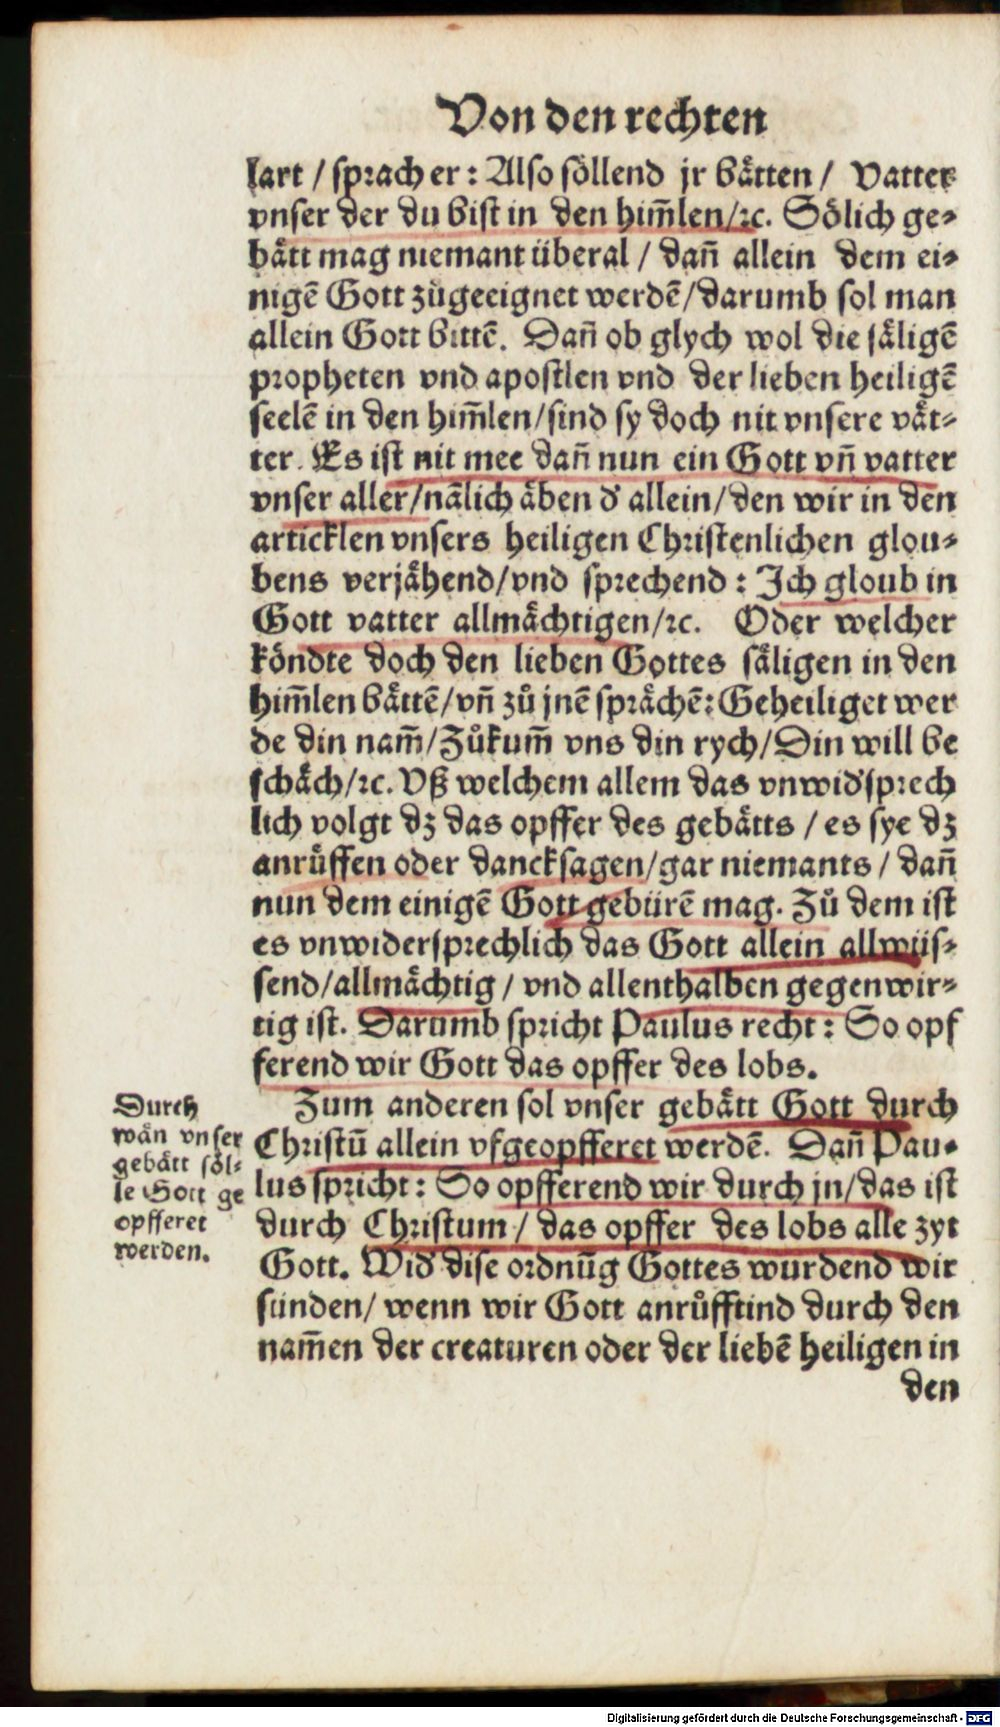 Von den rechten
lart / sprach er: Also söllend jr bätten / Vatter
vnser der du bist in den him̃len/ꝛc. Sölich ge⸗
bätt mag niemant überal / dañ allein dem ei⸗
nigẽ Gott zůgeeignet werdẽ/darumb sol man
allein Gott bittẽ. Dañ ob glych wol die säligẽ
propheten vnd apostlen vnd der lieben heiligẽ
seelẽ in den him̃len/sind sy doch nit vnsere vät⸗
ter. Es ist nit mee dañ nun ein Gott vñ vatter
vnser aller/nãlich äben d' allein/den wir in den
articklen vnsers heiligen Christenlichen glou⸗
bens verjähend/vnd sprechend: Ich gloub in
Gott vatter allmächtigen/ꝛc. Oder welcher
köndte doch den lieben Gottes säligen in den
him̃len bättẽ/vñ zů jnẽ sprächẽ: Geheiliget wer
de din nam̃/Zůkum̃ vns din rych/Din will be
schäch/ꝛc. Vß welchem allem das vnwid'sprech
lich volgt dz das opffer des gebätts / es sye dz
anrůffen oder dancksagen/gar niemants / dañ
nun dem einigẽ Gott gebürẽ mag. Zů dem ist
es vnwidersprechlich das Gott allein allwüs⸗
send/allmächtig / vnd allenthalben gegenwir⸗
tig ist. Darumb spricht Paulus recht: So opf
ferend wir Gott das opffer des lobs.
Zum anderen sol vnser gebätt Gott durch
Christũ allein vfgeopfferet werdẽ. Dañ Pau⸗
lus spricht: So opfferend wir durch jn/das ist
durch Christum / das opffer des lobs alle zyt
Gott. Wid' dise ordnũg Gottes wurdend wir
sünden/ wenn wir Gott anrůfftind durch den
nam̃en der creaturen oder der liebẽ heiligen in
den
Durch
wän vnser
gebätt söl⸗
le Gott ge
opfferet
werden.
Digitalisierung gefördert durch die Deutsche Forschungsgemeinschaft - DFG